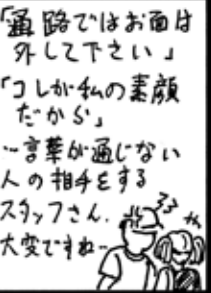 「通路ではお面は
外して下さい」
「コレが私の素顔
だから」
〜言葉が通じない
人の相手をする
スタッフさん、
大変ですね〜